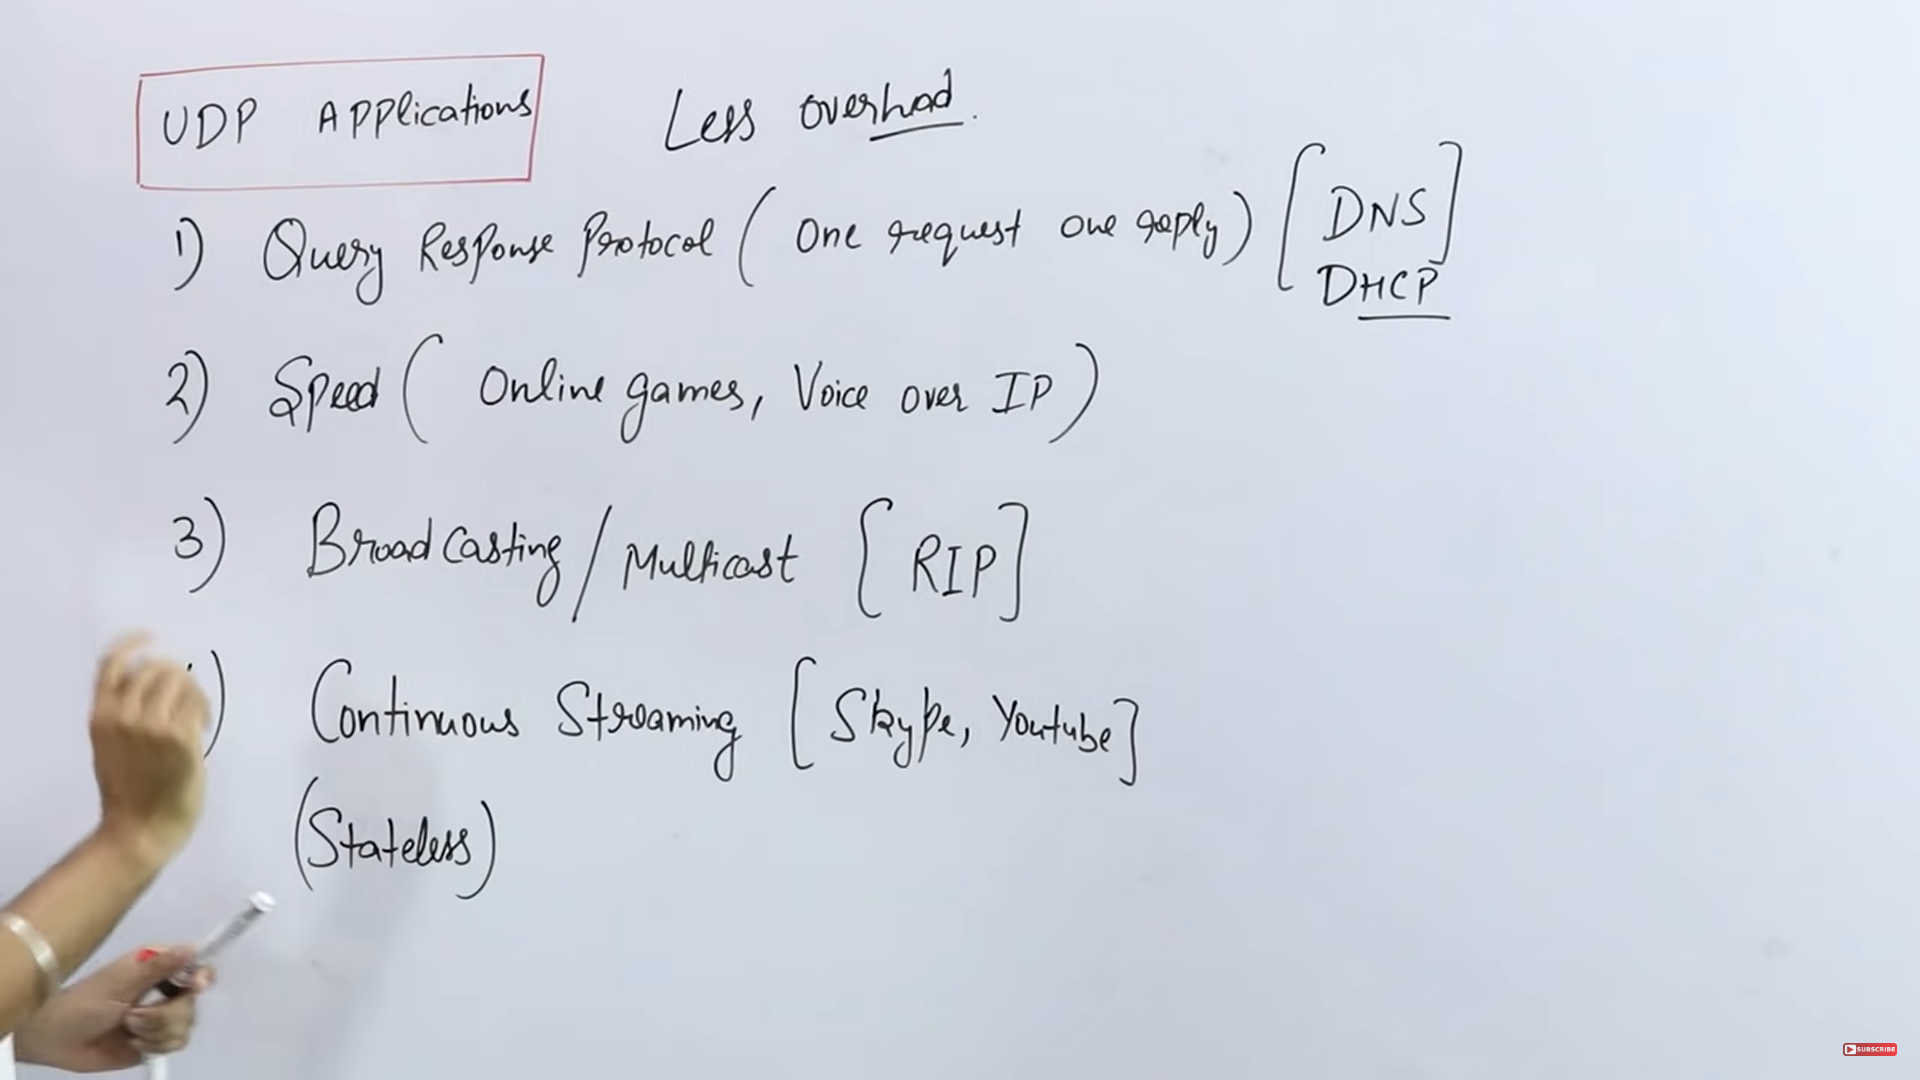 UDP Applications Less overhad.
1) Query Response Protocol ( One request one reply) [DNS]
DHCP
2) Speed ( Online games, Voice over IP )
3) Broadcasting / Multicast [RIP]
) Continuous Streaming [Skype, Youtube]
(Stateless)
SUBSCRIBE